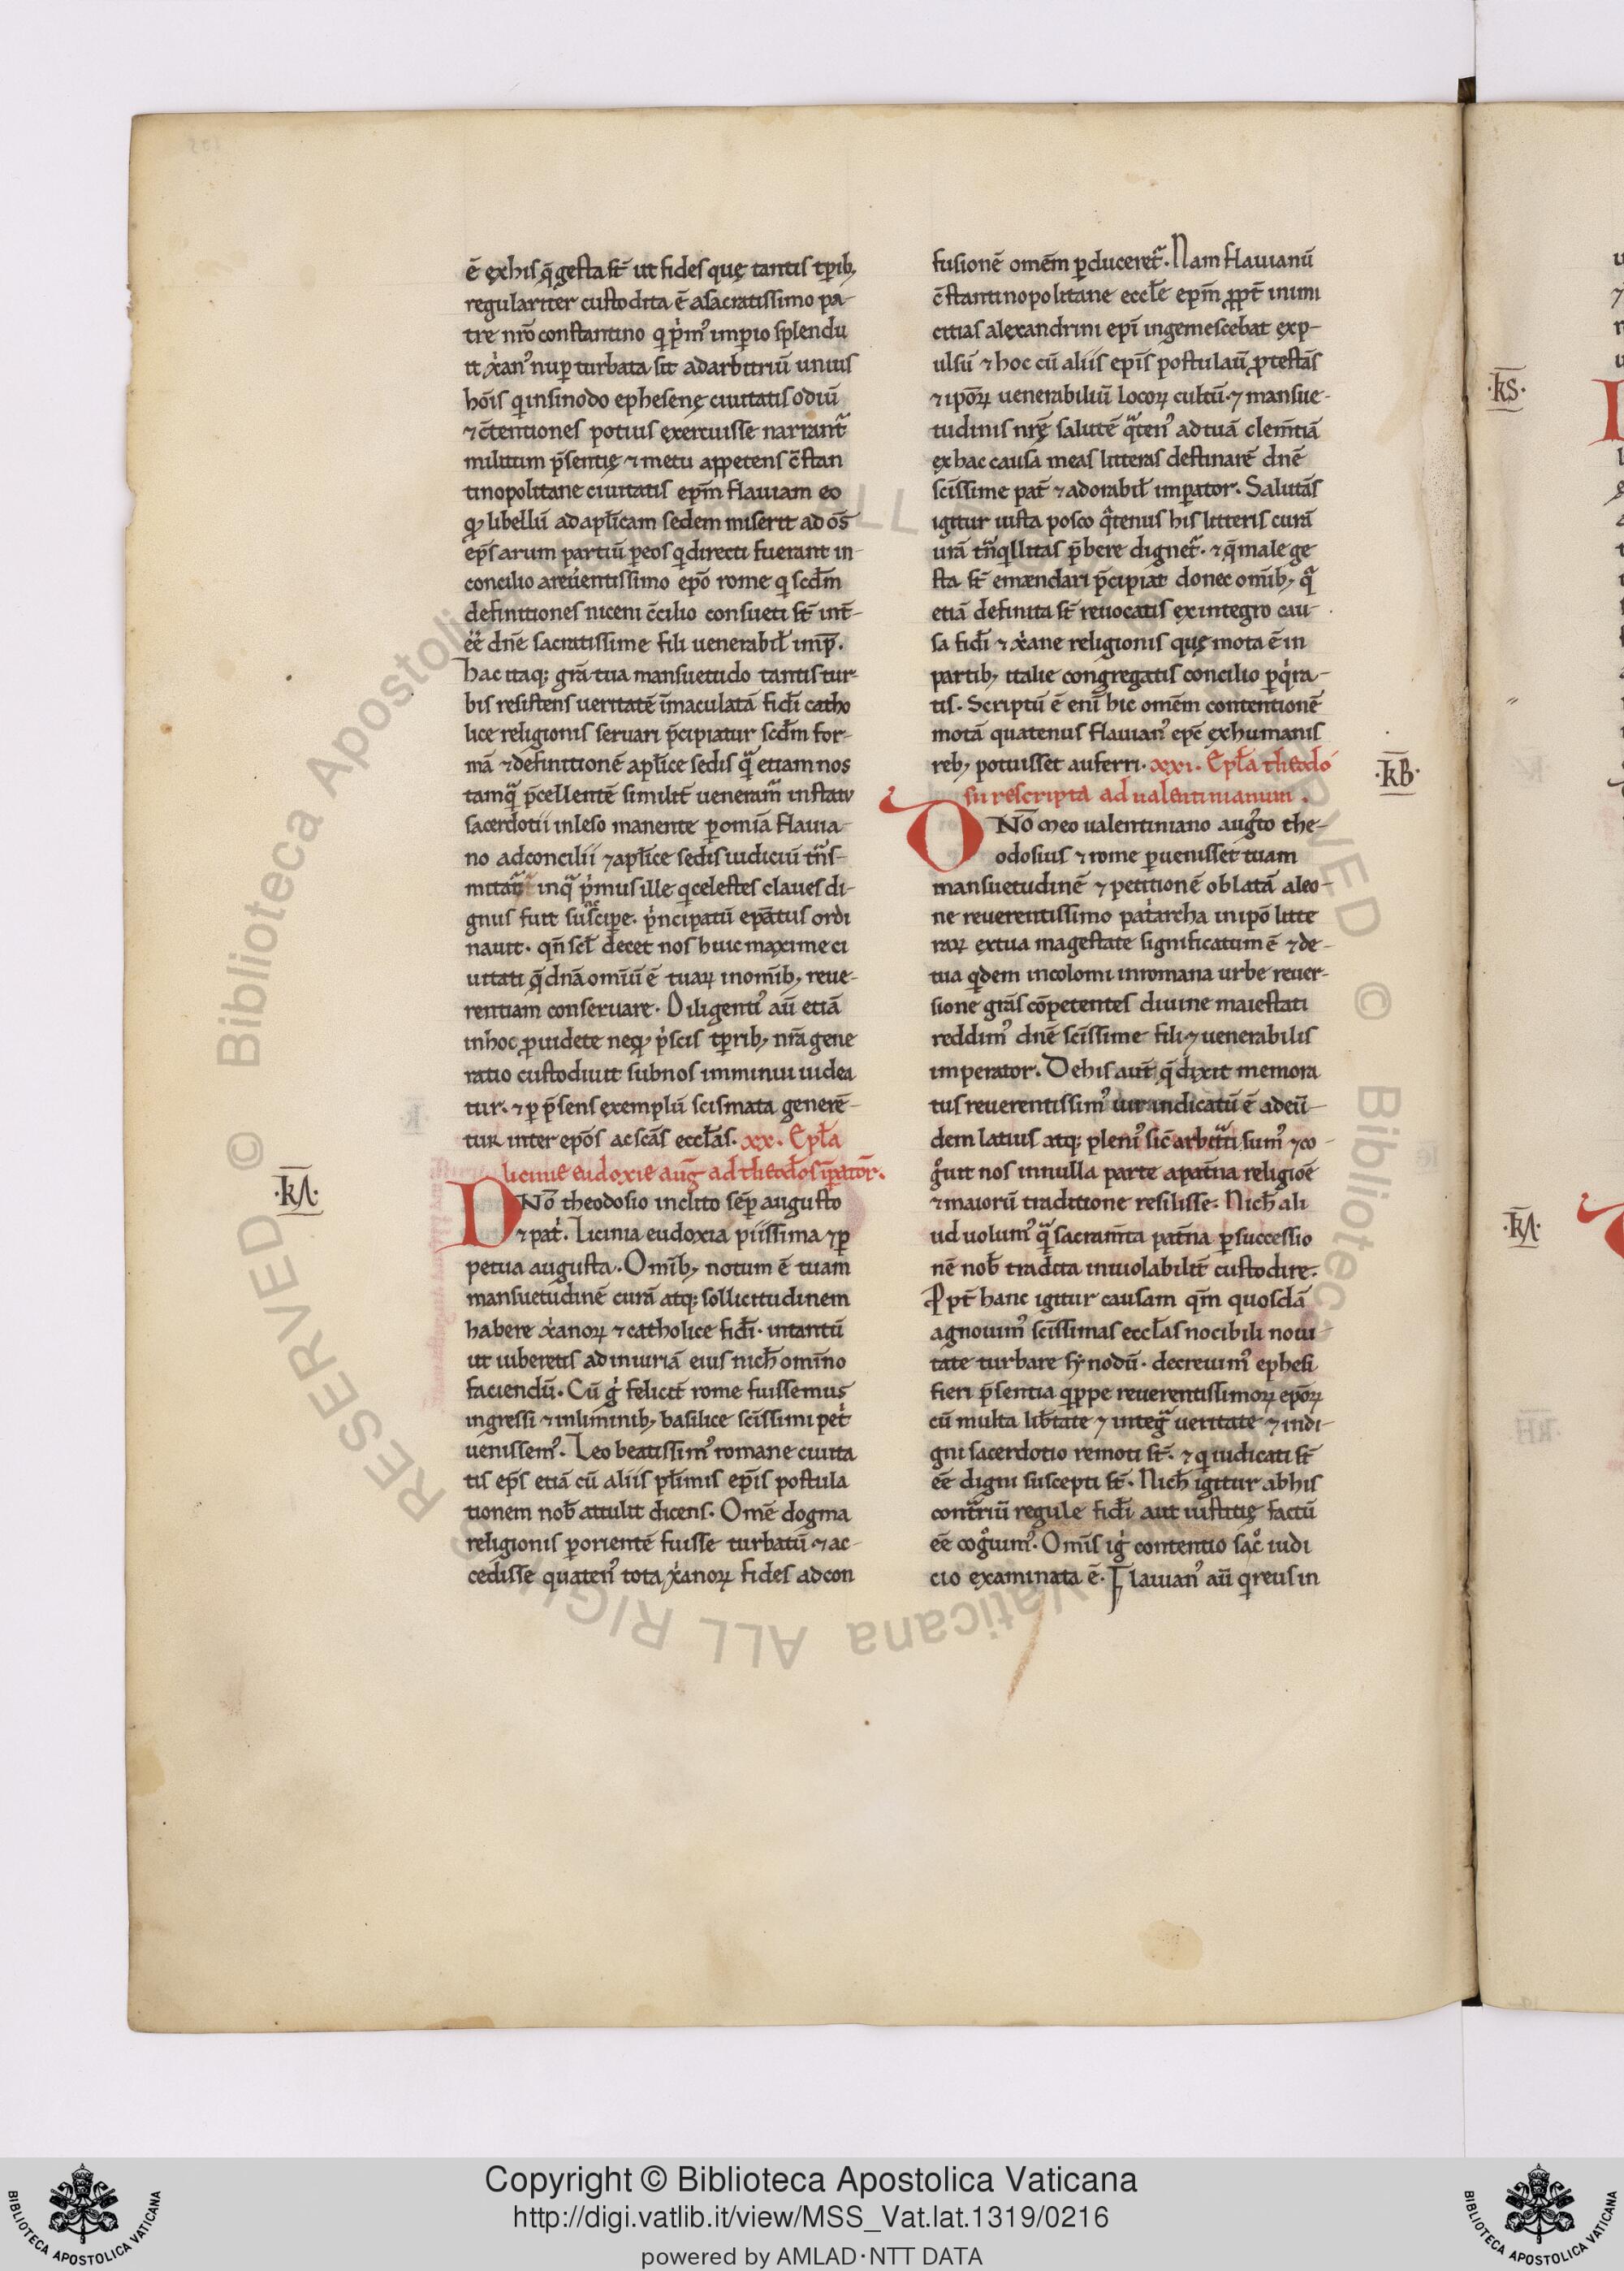 ē ęxhis q̄ gesta st̄ ut fides quę tantis tp̄rib;
regulariter custodita ē asacratissimo pa-
tre nr̄o constantino qi p̍m᾿ imp̄io splendu
it xp̍an᾿ nup̄ turbata sit adarbitriū unius
hōis qi insinodo ephesenę ciuitatis odiū
⁊ c̄tentiones potius exercuisse narrant᷑
militum p̄sentię ⁊ metu appetens c̄stan
tinopolitane ciuitatis ep̄m flauiam eo
qꝫ libellū adapl̄icam sedem miserit ad oīs
ep̄s arum partiū peos qi directi fuerant in-
concilio areuentissimo ep̄o rome qi scd̄m
definitiones niceni c̄cilio consueti st̄ int̄-
ēē dn̄e sacratissime fili uenerabil̄ imp̄.
hac itaq; grā tua mansuetudo tantis tur-
bis resistens ueritatē īmaculatā fidi catho
lice religionis seruari p̄cipiatur scd̄m for-
mā ⁊ definitionē apl̄ice sedis qͣ etiam nos
tamqͣ p̄cellentē similit̄ ueneram᷑ instatu
sacerdotii inleso manente p omīa flauia-
no adconcilii ⁊ apl̄ice sedis iudiciū tn̄s-
mitat᷑ inqͣ p̍mus ille qi celestes claues di-
gnus fuit suscipe. p̍ncipatū ep̄atus ordi
nauit. qn̄ scl̄ decet nos huic maxime ci
uitati q̄ dnā omīū ē tuaꝝ inomīb; reue-
rentiam conseruare. Diligenti᾿ aū etiā
inhoc puidete neqꝫ p̍scis tp̄rib; nr̄a gene
ratio custodiuit subnos imminui uidea
tur. ⁊ p p̄sens exemplū scismata generē-
tur inter ep̄os ac scās eccl̄as. xx. Epl̄a
licinie eudoxie auḡ ad theodos̄ īpatōr.
·K̄Λ·
DNō theodosio inclito sēp augusto
⁊ pat̍. Licinia eudoxia piissima ⁊ p
petua augusta. Omīb; notum ē tuam
mansuetudinē curā atq; sollicitudinem
habere xp̍anoꝝ ⁊ catholice fidi. intantū
ut iuberetis ad iniuriā eius nich̄ omīno
faciendū. Cū g̍ felicit̄ rome fuissemus
ingressi ⁊ inliminib; basilice scīssimi pet̍
uenissem᾿. Leo beatissim᾿ romane ciuita
tis ep̄s etiā cū aliis pl̄imis ep̄is postula
tionem nob̄ attulit dicens. Omē dogma
religionis p orientē fuisse turbatū ⁊ ac-
cedisse quaten᾿ tota xp̍anoꝝ fides adcon
fusionē omēm pduceret᷑. Nam flauianū
c̄stantinopolitane eccl̄e ep̄m ꝓpt̄ inimi
citias alexandrini ep̄i ingemescebat exp-
ulsū ⁊ hoc cū aliis ep̄is postulauī ptestās
⁊ ipōꝝ uenerabiliū locoꝝ cultū. ⁊ mansue-
tudinis nr̄ę salutē qͣten᾿ ad tuā clem̄tiā
ex hac causa meas litteras destinarē dn̄e
scīssime pat̄ ⁊ adorabil̄ imp̄ator. Salutās
igitur iusta posco qͣtenus his litteris curā
urā tn̄qillitas p̄bere dignet᷑. ⁊ q̄ male ge
sta st̄ emændari p̄cipiat donec omīb; qͣ
etiā definita st̄ reuocatis ex integro cau-
sa fidi ⁊ xp̍ane religionis quę mota ē in
partib; italie congregatis concilio pq̍ra-
tis. Scriptū ē enī hic omēm contentionē
motā quatenus flauian᾿ epc̄ exhumanis
reb; potuisset auferri. xxi. Epl̄a theodo
sii rescripta ad ualentinianum.
·K̄B·
DNō meo ualentiniano aug̍to the-
odosius ⁊ rome puenisset tuam
mansuetudinē ⁊ petitionē oblatā aleo-
ne reuerentissimo pat̍archa inipō litte
raꝝ ex tua magestate significatum ē ⁊ de-
tua qidem incolomi inromana urbe reuer-
sione grās cōpetentes diuine maiestati
reddim᾿ dn̄e scīssime fili ⁊ uenerabilis
imperator. De his aut̄ q̄ dixit memora
tus reuerentissim᾿ uir indicatū ē adeū-
dem latius atq; pleni᾿ sic̄ arbitᷓti sum᾿ ⁊ co-
g̊uit nos innulla parte apat̄na religiōe
⁊ maiorū traditione resilisse. Nich̄ ali
ud uolum᾿ qͣ sacram̄ta pat̄na p successio
nē nob̄ tradita inuiolabilit̄ custodire.
Ppt̄ hanc igitur causam qm̄ quosdā
agnouim᾿ scīssimas eccl̄as nocibili noui-
tate turbare sẏnodū. decreuim᾿ ephesi
fieri p̄sentia qippe reuerentissimoꝝ epōꝝ
cū multa lib̄tate ⁊ integͣ ueritate ⁊ indi-
gni sacerdotio remoti st̄. ⁊ qi iudicati st̄
ēē digni suscepti st̄. Nich̄ igitur abhis
contͣriū regule fidi aut iustitię factū
ēē cog̊uim᾿. Omīs ig̍ contentio sac̊ iudi
cio examinata ē. Flauian᾿ aū qi reus in
·K̄S·
·K̄Λ·
Copyright © Biblioteca Apostolica Vaticana
http://digi.vatlib.it/view/MSS_Vat.lat.1319/0216
powered by AMLAD·NTT DATA
BIBLIOTECA APOSTOLICA VATICANA
BIBLIOTECA APOSTOLICA VATICANA
© Biblioteca Apostolica Vaticana ALL RIGHTS RESERVED